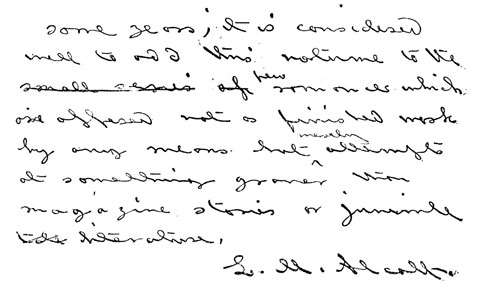 some years, it is considered
well to add this volume to the
small series of few romances which
are offered not as finished work
by any means but merely attempts
at something graver than
magazine stories or juvenile
literature.
L. M. Alcott.